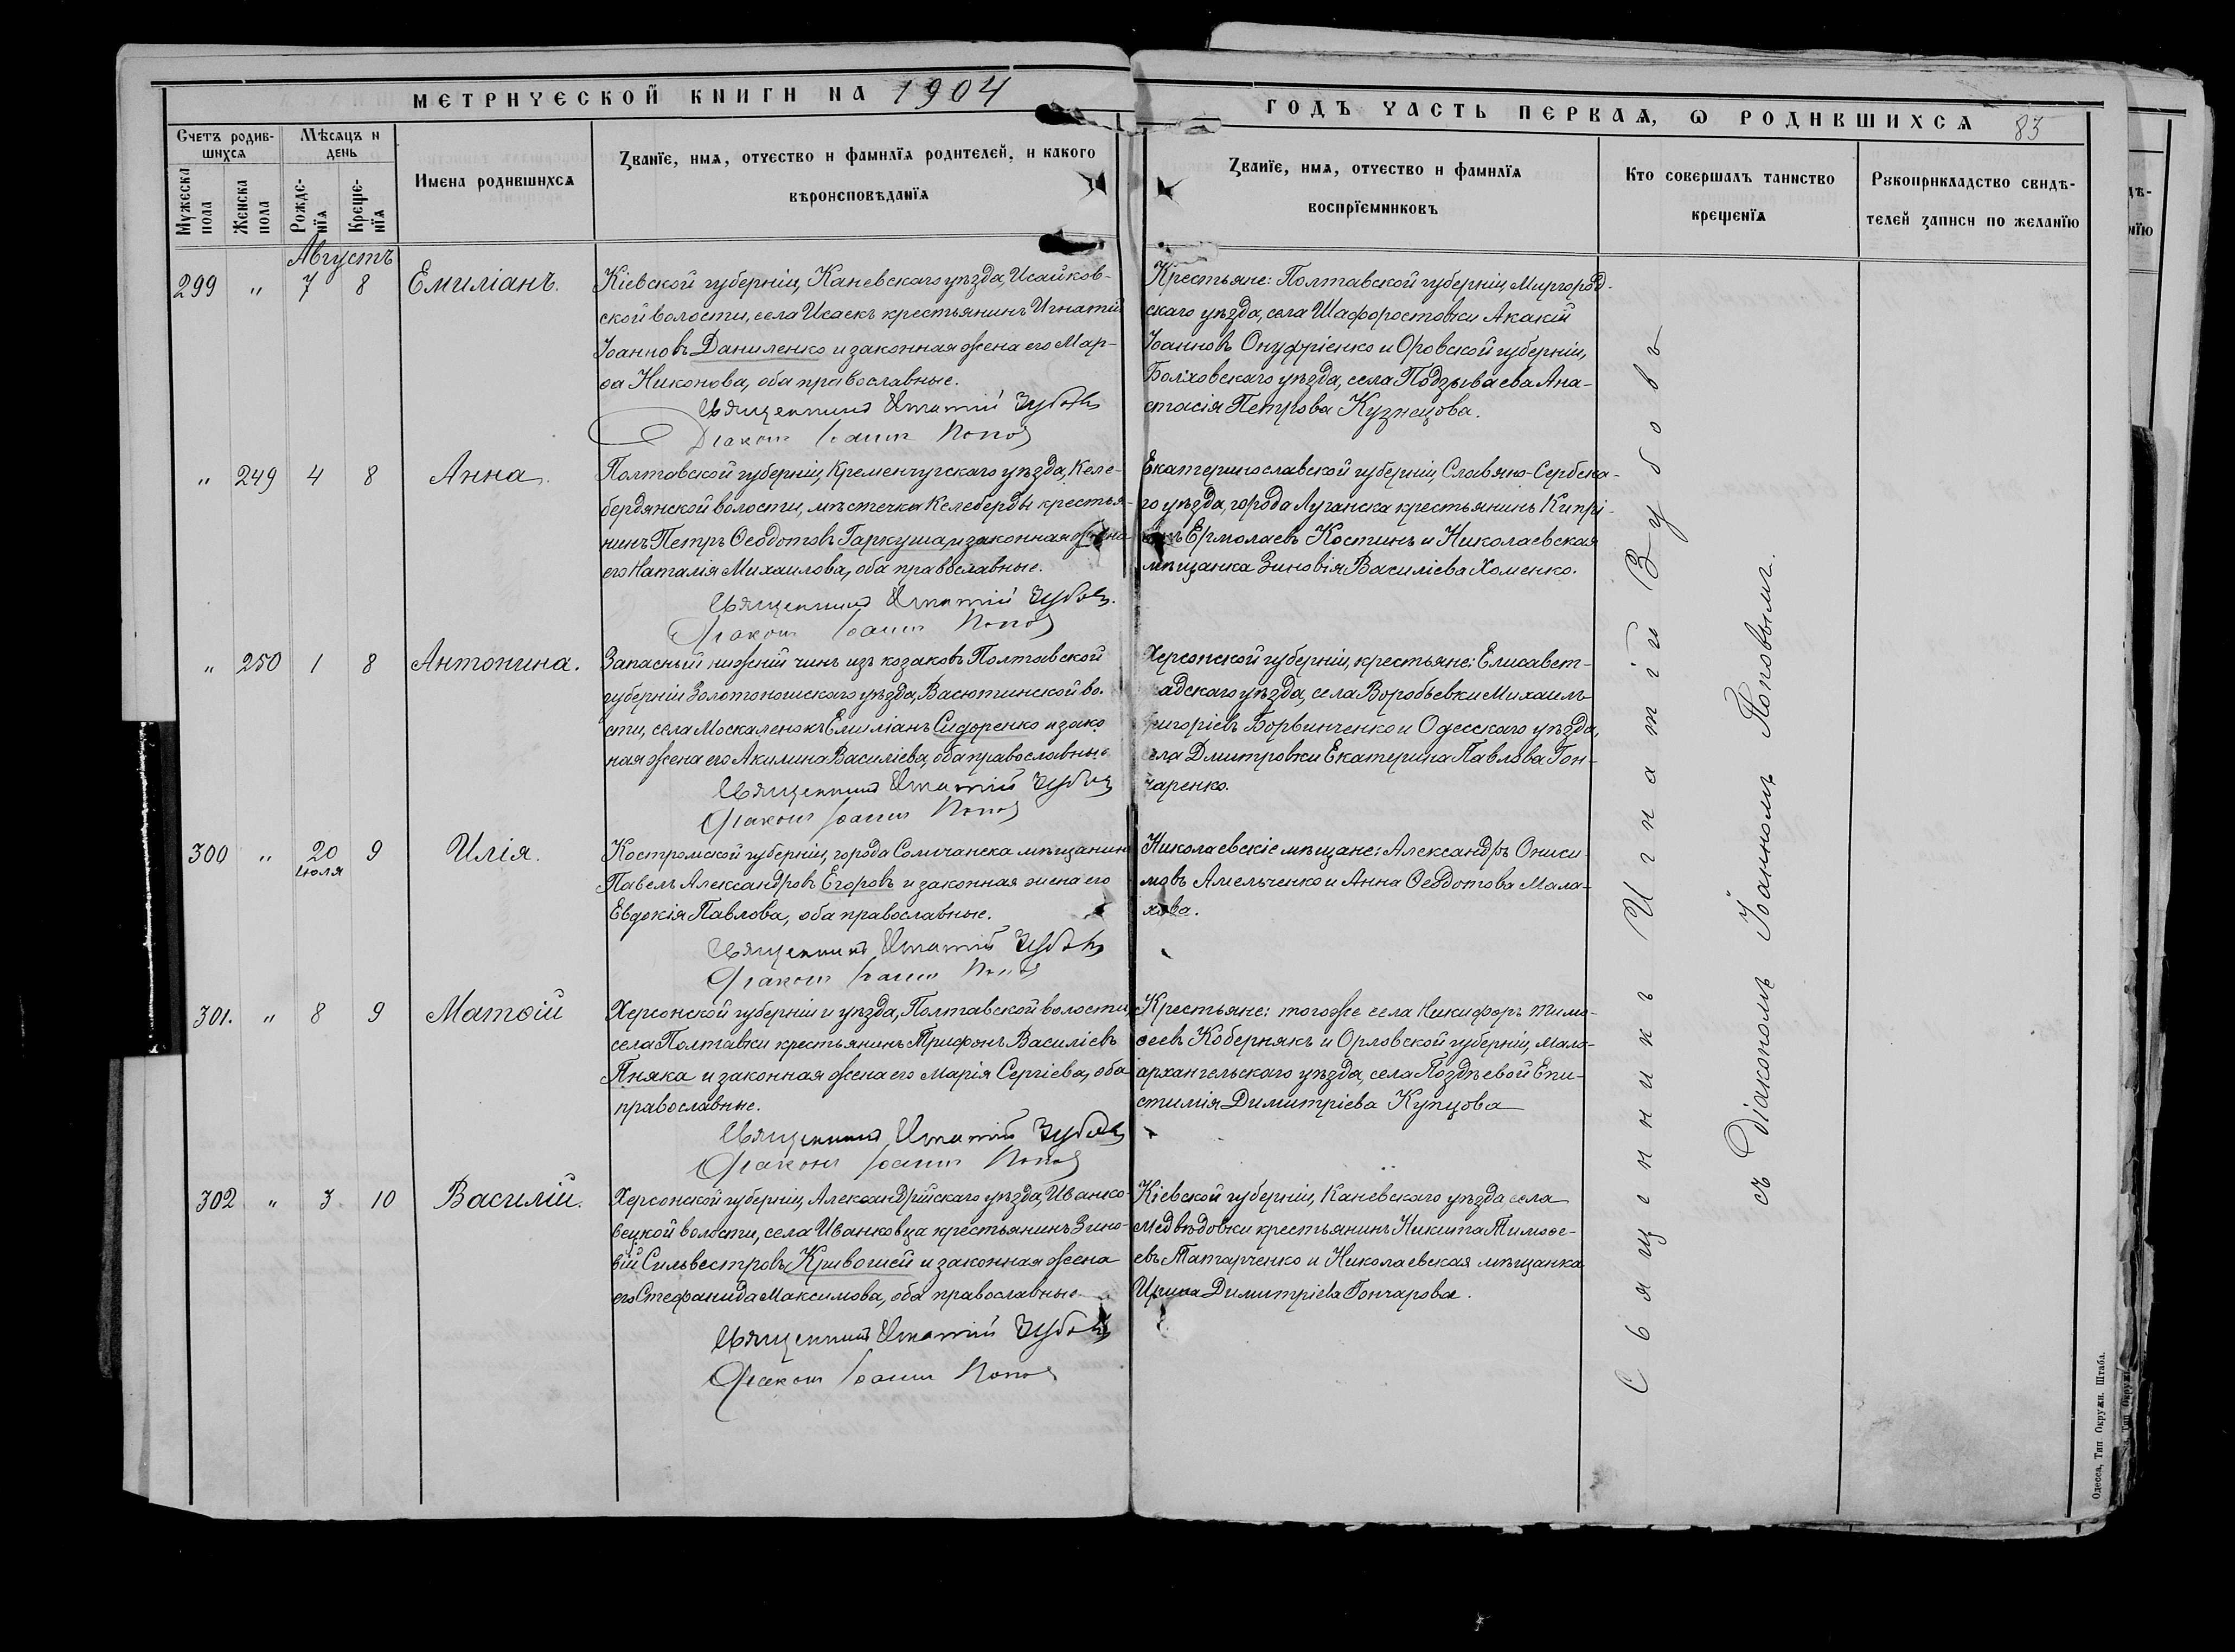 МЕТРИЧЕСКОЙ КНИГИ НА 1904
Счетъ родив-
шихся
Мѣсяцъ и
день
Имена родившихся
Званїе, имя, отчество и фамилїя родителей, и какого
вѣроисповѣданїя
Мужеска
пола
Женска
пола
Рожде-
нїя
Креще-
нїя
Августъ
299 " 7 8 Емиліанъ.
Кіевской губерніи, Каневскаго уѣзда, Исайков-
ской волости, села Исаекъ крестьянинъ Игнатій
Іоанновъ Даниленко и законная жена его Мар-
ѳа Никонова, оба православные.
Священникъ Игнатій Зубовъ
Діаконъ Іоаннъ Поповъ
" 249 4 8 Анна.
Полтавской губерніи, Кременчугскаго уѣзда, Келе-
бердянской волости, мѣстечка Келеберды крестья-
нинъ Петръ Ѳеодотовъ Гаркуша, и законная жена
его Наталія Михаилова, оба православные.
Священникъ Игнатій Зубовъ.
Діаконъ Іоаннъ Поповъ
" 250 1 8 Антонина.
Запасный нижній чинъ изъ козаковъ Полтавской
губерніи Золотоношскаго уѣзда, Васютинской во-
сти, села Москаленокъ Емиліанъ Сидоренко и зако
ная жена его Акилина Василіева, оба православные
Священникъ Игнатій Зубовъ
Діаконъ Іоаннъ Поповъ
300 " 20 9 Илія.
Іюля
Костромской губерніи, города мѣщанинъ
Павелъ Александровъ Егоровъ и законная жена его
Евдокія Павлова, оба православные.
Священникъ Игнатій Зубовъ
Діаконъ Іоаннъ Поповъ
301. " 8 9 Матѳій
Херсонской губерніи и уѣзда, Полтавской волости,
села Полтавки крестьянинъ Трифонъ Василіевъ
Пняка и законная жена его Марія Сергіева, оба
православные.
Священникъ Игнатій Зубовъ
Діаконъ Іоаннъ Поповъ
302 " 3 10 Василій.
Херсонской губерніи, Александрійскаго уѣзда, Иванко-
вецкой волости, села Иванковца крестьянинъ Зино-
вій Сильвестровъ Кривошей и законная жена
его Стефанида Максимова, оба православные
Священникъ Игнатій Зубовъ
Діаконъ Іоаннъ Поповъ
ГОДЪ ЧАСТЬ ПЕРВАЯ, Ѡ РОДИВШИХСЯ 83
Званїе, имя, отчество и фамилїя
воспрїемниковъ
Кто совершалъ таинство
крещенїя
Рукоприкладство свидѣ-
телей записи по желанїю
Крестьяне: Полтавской губерніи, Миргород-
скаго уѣзда, села Шафоростовки Акакій
Іоанновъ Онуфріенко и Оровской губерніи,
Болховскаго уѣзда, села Подзываева Ана-
стасія Петрова Кузнецова.
Екатеринославской губерніи, Славяно-Сербска-
го уѣзда, города Луганска крестьянинъ Кипрі-
анъ Ермолаевъ Костинъ и Николаевская
мѣщанка Зиновія Василіева Хоменко.
Херсонской губерніи, крестьяне: Елисавет-
адскаго уѣзда, села Воробьевки Михаилъ
Григоріевъ Борвинченко и Одесскаго уѣзда,
села Дмитровки Екатерина Павлова Гон-
чаренко.
Николаевскіе мѣщане: Александръ Ониси-
мовъ Амельченко и Анна Ѳеодотова Мала-
хова.
Крестьяне: того же села Никифоръ Тимо-
ѳеевъ Кобернякъ и Орловской губерніи, Мало-
архангельскаго уѣзда, села Поздѣевой Епи-
стимія Димитріева Купцова
Кіевской губерніи, Каневскаго уѣзда села
Медвѣдовки крестьянинъ Никита Тимоѳе-
евъ Татарченко и Николаевская мѣщанка
Ирина Димитріева Гончарова.
Священникъ Игнатій Зубовъ
съ Діакономъ Іоанномъ Поповымъ.
Одесса, Тип. Окружн. Штаба.